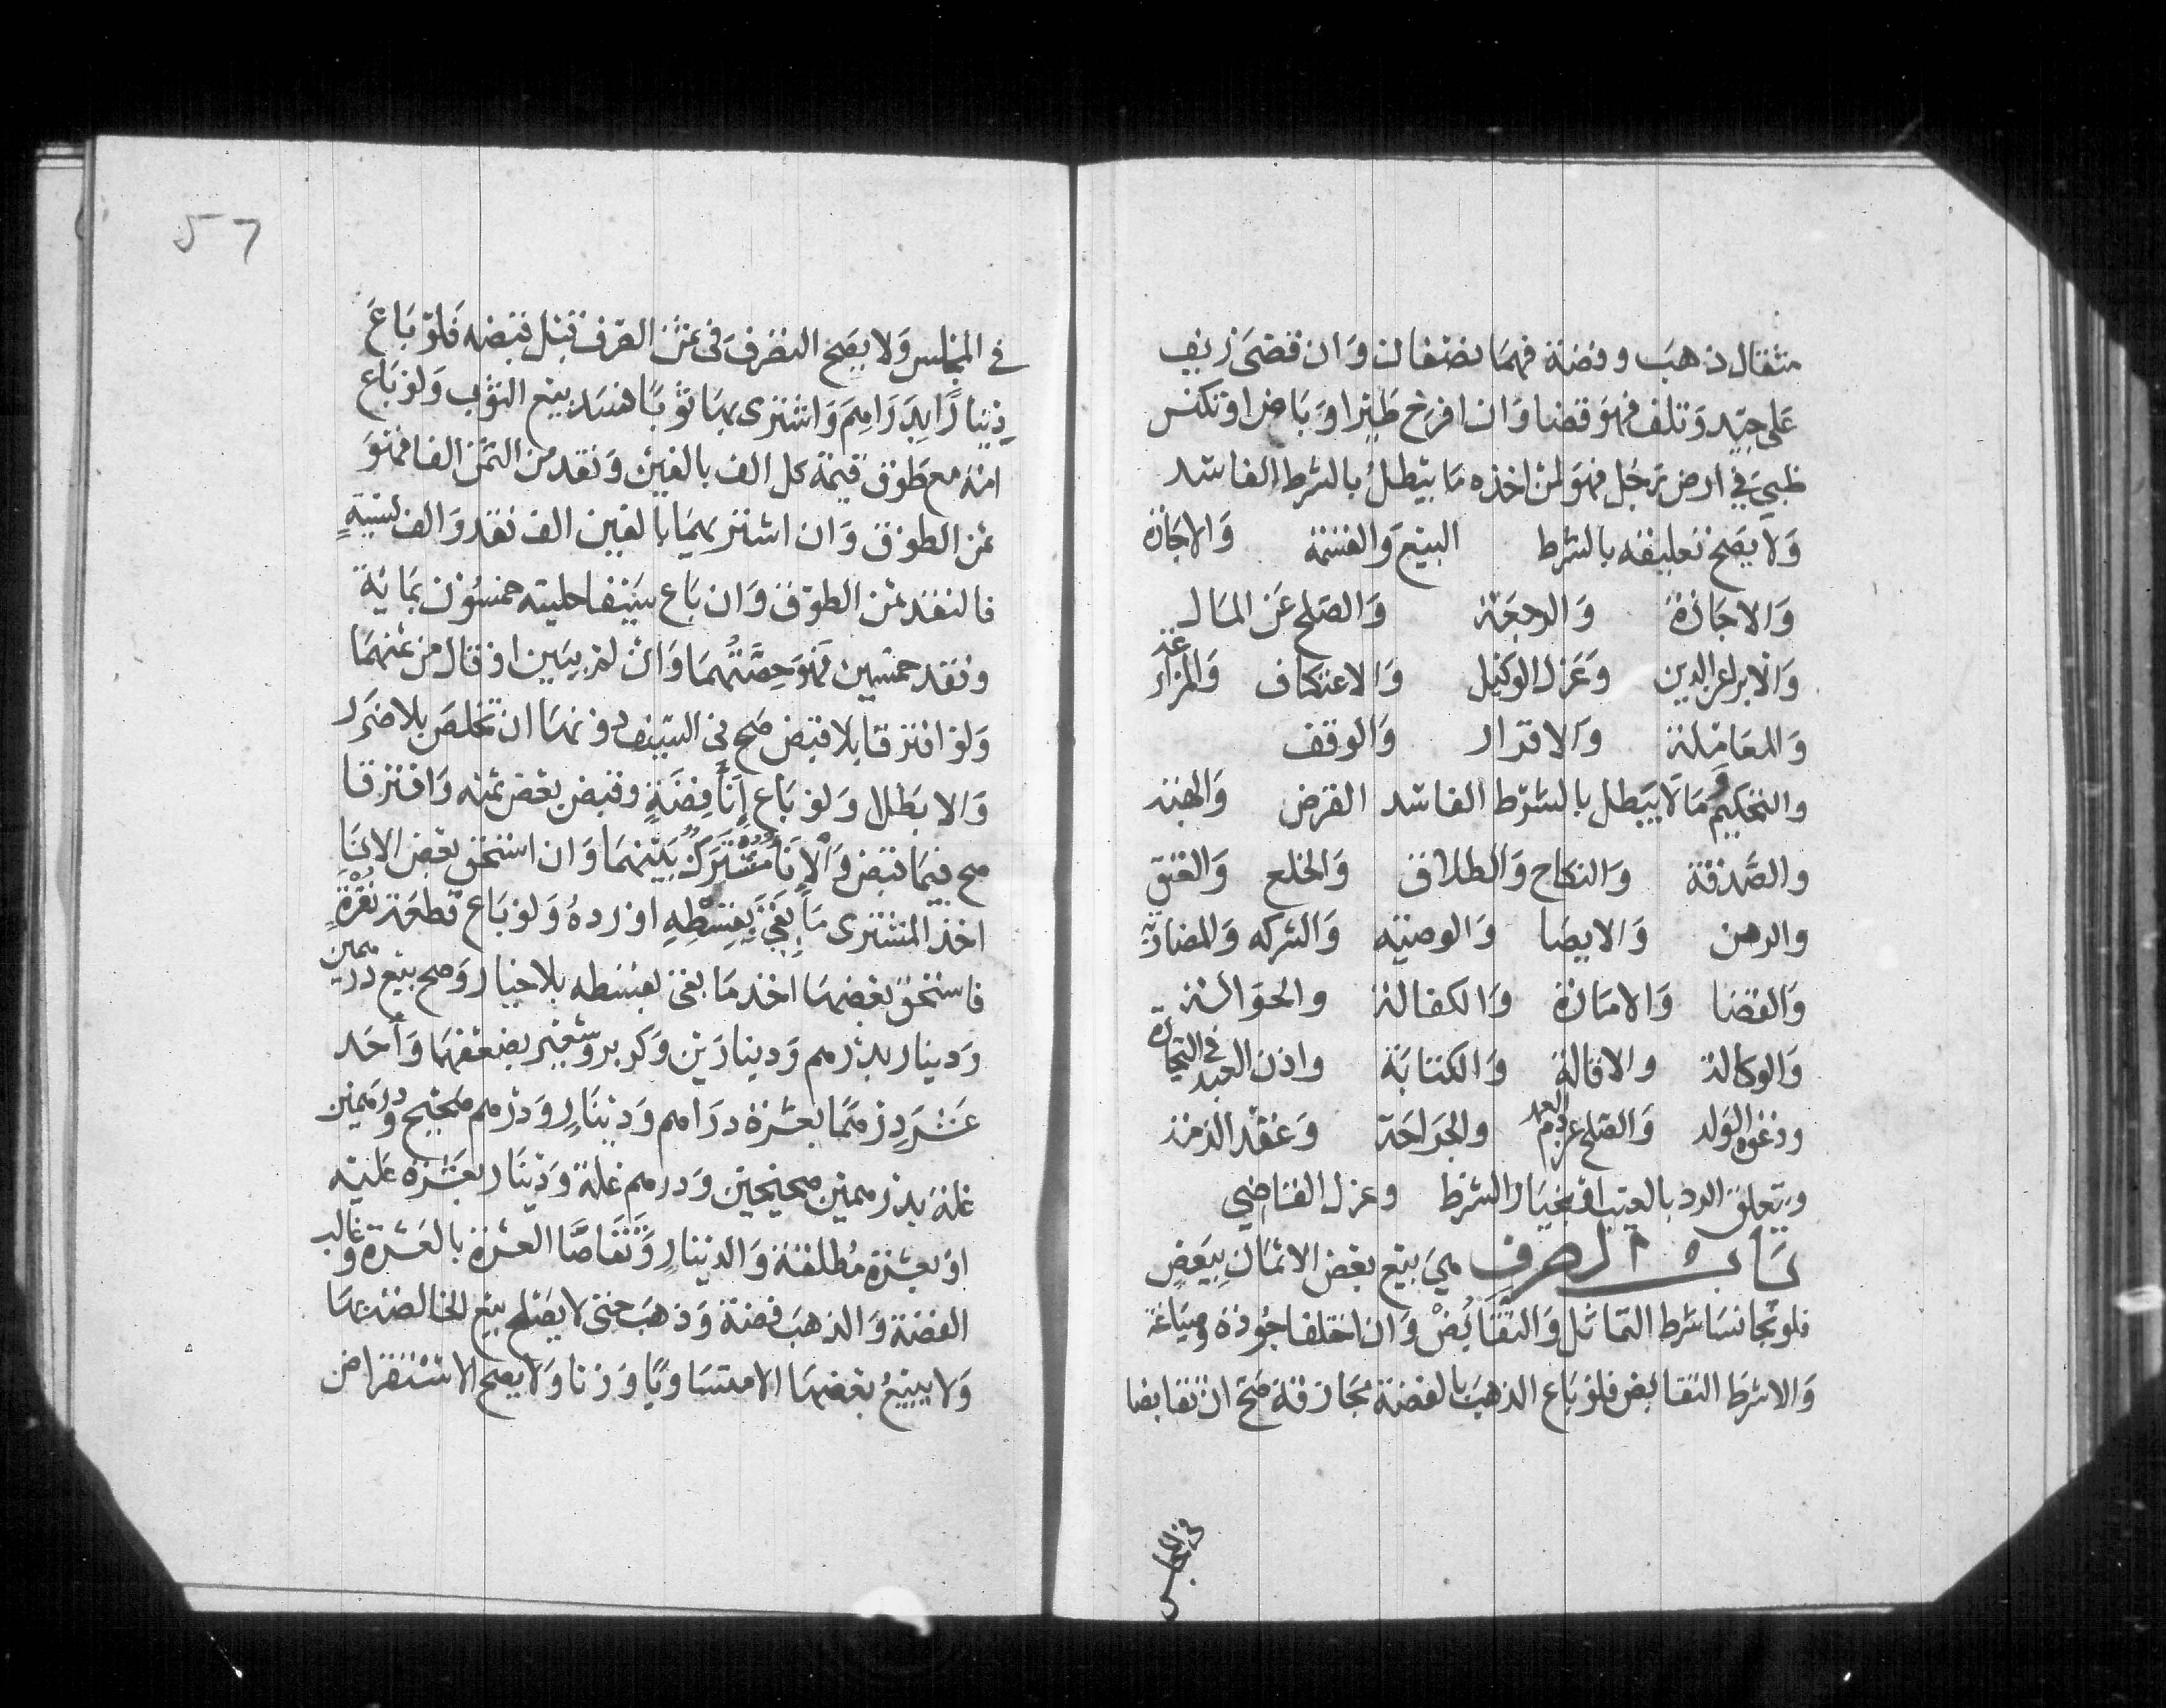 مثقال ذهب وفضة فهما نصفان وان قضى زيف
على جيد وتلف فهو قضا وان افرخ طير او باض او تكنس
ظبي في ارض رجل فهو لمن اخذه ما يبطل بالشرط الفاسد
ولا يصح تعليقه بالشرط البيع والقسمة والاجارة
والاجازة والرجعة والصلح عن المال
والابرا عن الدين وعزل الوكيل والاعتكاف والمزارعة
والمعاملة والاقرار والوقف
والتحكيم وما لا يبطل بالشرط الفاسد القرض والهبة
والصدقة والنكاح والطلاق والخلع والعتق
والرهن والايصا والوصية والشركه والمضاربة
والقضا والامارة والكفالة والحوالة
والوكالة والاقالة والكتابة واذن العبد في التجارة
ودعوة الولد والصلح عن دم العمد والجراحة وعقد الذمة
وتعليق الرد بالعيب او بخيار الشرط وعزل القاضي
باب الصرف هي بيع بعض الاثمان ببعض
فلو تجانسا شرط التماثل والتقابض وان اختلفا جودة وصياغة
والا شرط التقابض فلو باع الذهب بالفضة مجازفة صح ان تقابضا
في المجلس
57
في المجلس ولا يصح التصرف في ثمن الصرف قبل قبضه فلو باع
دينارا بدراهم واشترى بها ثوبا فسد بيع الثوب ولو باع
امة مع طوق قيمة كل الف بالفين ونقد من الثمن الفا فهو
ثمن الطوق وان اشتريهما بالفين الف نقد والف نسية
فالنقد ثمن الطوق وان باع سيفا حليته خمسون بماية
ونقد خمسين فهو حصتهما وان لم يبين او قال من ثمنهما
ولو افترقا بلا قبض صح في السيف دونها ان تخلص بلا ضرر
والا بطلا ولو باع انا فضة وقبض بعض ثمنه وافترقا
صح فيما قبض والانا مشترك بينهما وان استحق بعض الانا
اخذ المشترى ما بقي بقسطه او رده ولو باع قطعة نقرة
فاستحق بعضها اخذ ما بقى بقسطه بلا خيار وصح بيع درهمين
ودينار بدرهم ودينارين وكر بر وشعير بضعفهما واحد
عشر درهما بعشرة دراهم ودينار ودرهم صحيح ودرهمين
غلة بدرهمين صحيحين ودرهم غلة ودينار بعشرة عليه
او بعشرة مطلقة والدينار وتقاصا العشرة بالعشرة وغالب
الفضة والذهب فضة وذهب حتى لا يصلح بيع الخالصة بها
ولا يبيع بعضها الا متساويا وزنا ولا يصح الاستقراض